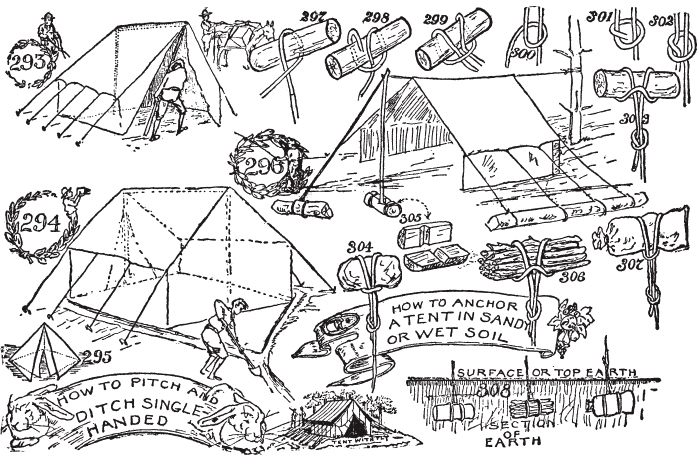 293
297
298
299
300
301
302
303
296
294
305
304
306
307
HOW TO ANCHOR
A TENT IN SANDY
OR WET SOIL
295
HOW TO PITCH AND
DITCH SINGLE
HANDED
TENT WITH FLY
SURFACE OR TOP EARTH
308
SECTION
OF
EARTH